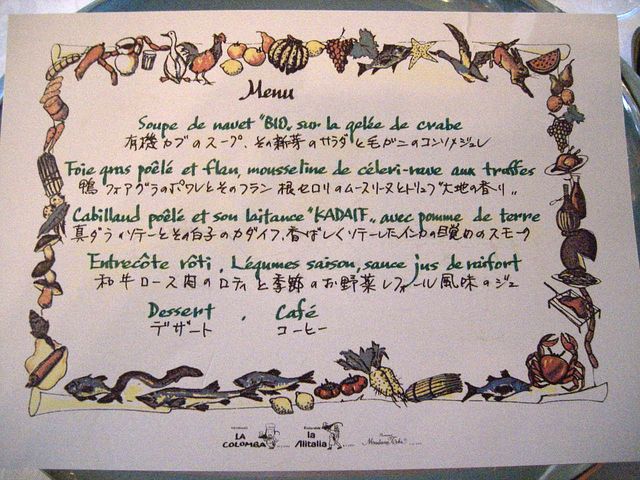 Menu
Soupe de navet "BIO„ sur la gelée de crabe
有機カブのスープ、その新芽のサラダと毛がニのコンソメジュレ
Foie gras poêlé et flan, mousseline de céleri-rave aux truffes
鴨フォアグラのポワレとそのフラン 根セロリのムースリーヌとトリュフ"大地の香り„
Cabillaud poêlé et son laitance "KADAIF„ avec pomme de terre
真ダラソテーとその白子のカダイフ、香ばしくソテーしたインカの目覚めのスモーク
Entrecôte rôti, Légumes saison, sauce jus de raifort
和牛ロース肉のロティと季節のお野菜レフォール風味のジュ
Dessert , Café
デザート コーヒー
LA COLOMBA
la Alitalia